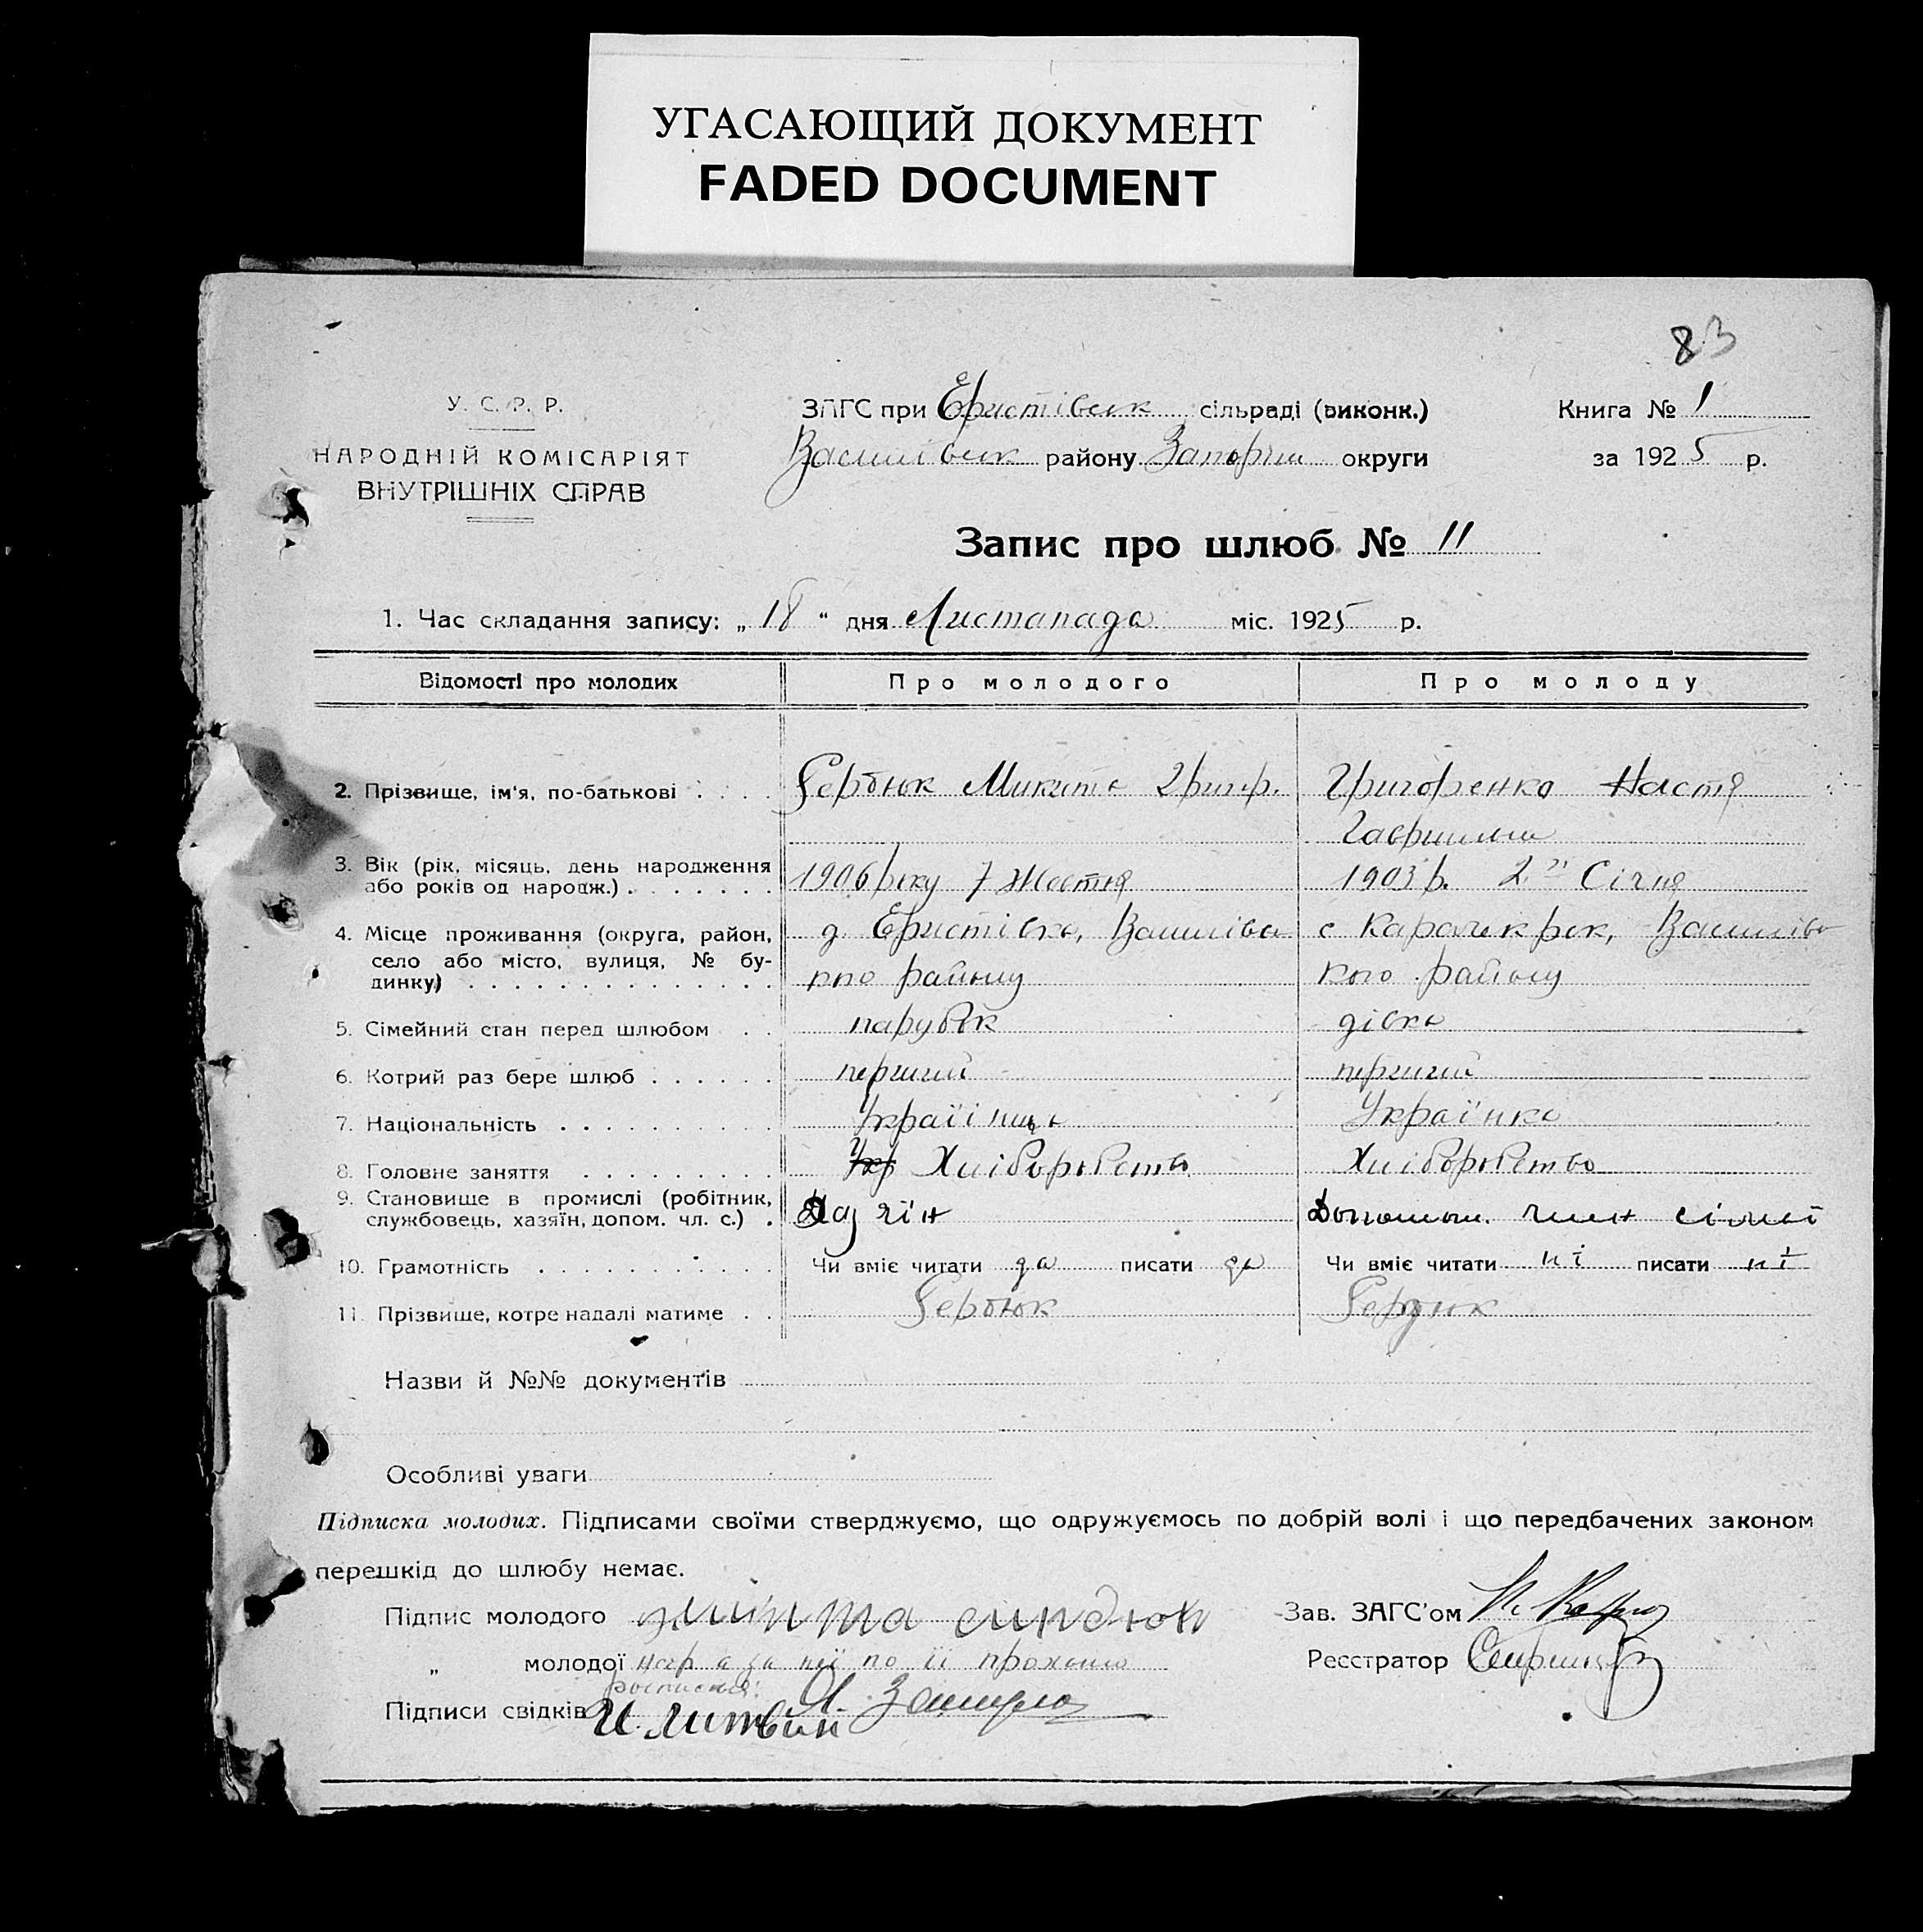 УГАСАЮЩИЙ ДОКУМЕНТ
FADED DOCUMENT
83
У. С. Р. Р.
НАРОДНІЙ КОМІСАРІЯТ
ВНУТРІШНІХ СПРАВ
ЗАГС при Єристівськ сільраді (виконк.)
Василівськ району Запоріж округи
Книга № 1
за 1925 р.
Запис про шлюб № 11
1. Час складання запису: „ 18 “ дня Листопада міс. 1925 р.
Відомості про молодих Про молодого Про молоду
2. Прізвище, ім'я, по-батькові . . . . Сердюк Микита Григор. Григоренко Настя
Гавриловна
3. Вік (рік, місяць, день народження 1906 року 7 Жовтня 1903 р. 2 Січня
або років од народж.) . . . . . . .
4. Місце проживання (округа, район, д. Єристівка, Василівс с Карачекрак, Василівс
село або місто, вулиця, № бу- кого району кого району
динку) . . . . . . . . . . . . . .
5. Сімейний стан перед шлюбом . . парубок дівка
6. Котрий раз бере шлюб . . . . . . перший перший
7. Національність . . . . . . . . . . Українка
8. Головне заняття . . . . . . . . . Укр Хліборобство Хліборобство
9. Становище в промислі (робітник,
службовець, хазяїн, допом. чл. с.) . член сімьї
10. Грамотність . . . . . . . . . . . Чи вміє читати да писати да Чи вміє читати ні писати ні
11. Прізвище, котре надалі матиме . . Сердюк Сердюк
Назви й №№ документів
Особливі уваги
Підписка молодих. Підписами своїми стверджуємо, що одружуємось по добрій волі і що передбачених законом
перешкід до шлюбу немає.
Підпис молодого Зав. ЗАГС'ом
„ молодої а за неї по її Реєстратор
Підписи свідків И. Литвин